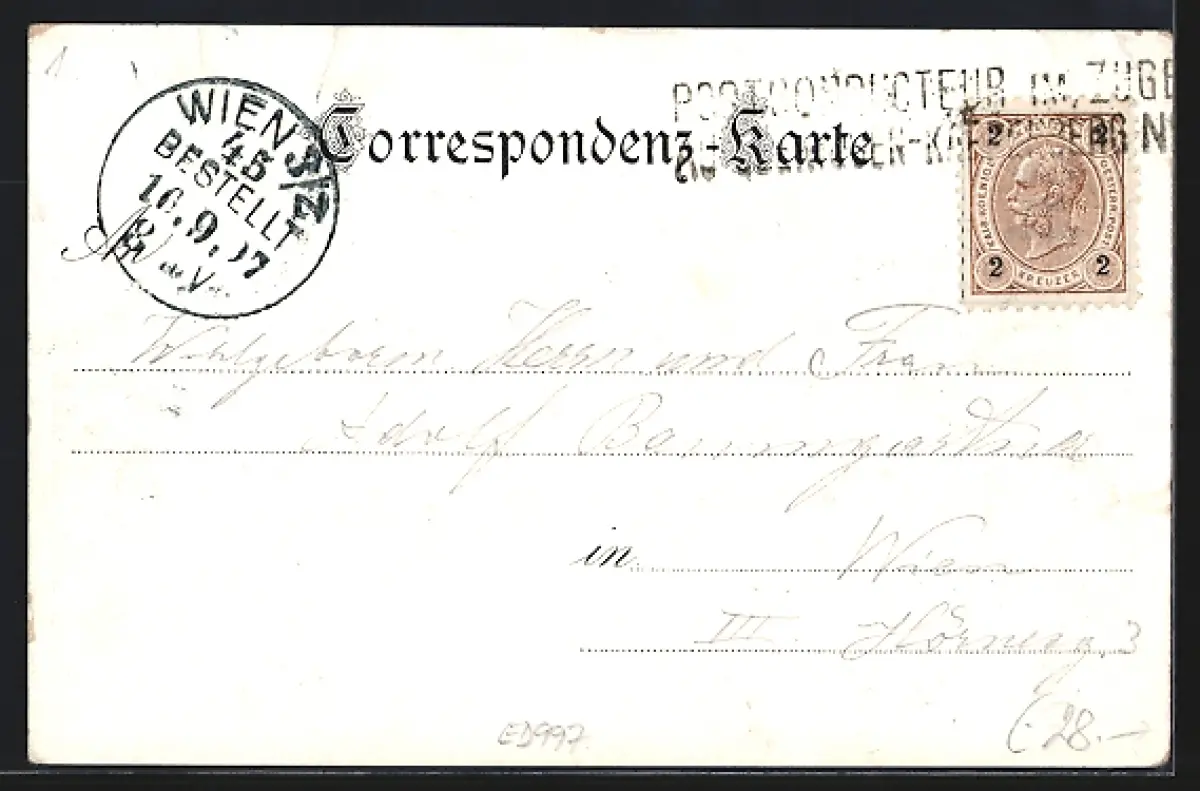 WIEN 3/2
45
BESTELLT
10.9.97
POSTCONDUCTEUR IM ZUGE
Correspondenz-Karte
2 2
KAIS. KOENIGL. OESTERR. POST
2 KREUZER 2
Wohlgeboren Herrn und Frau
Adolf
in Wien
III. 3
ED997
28.-